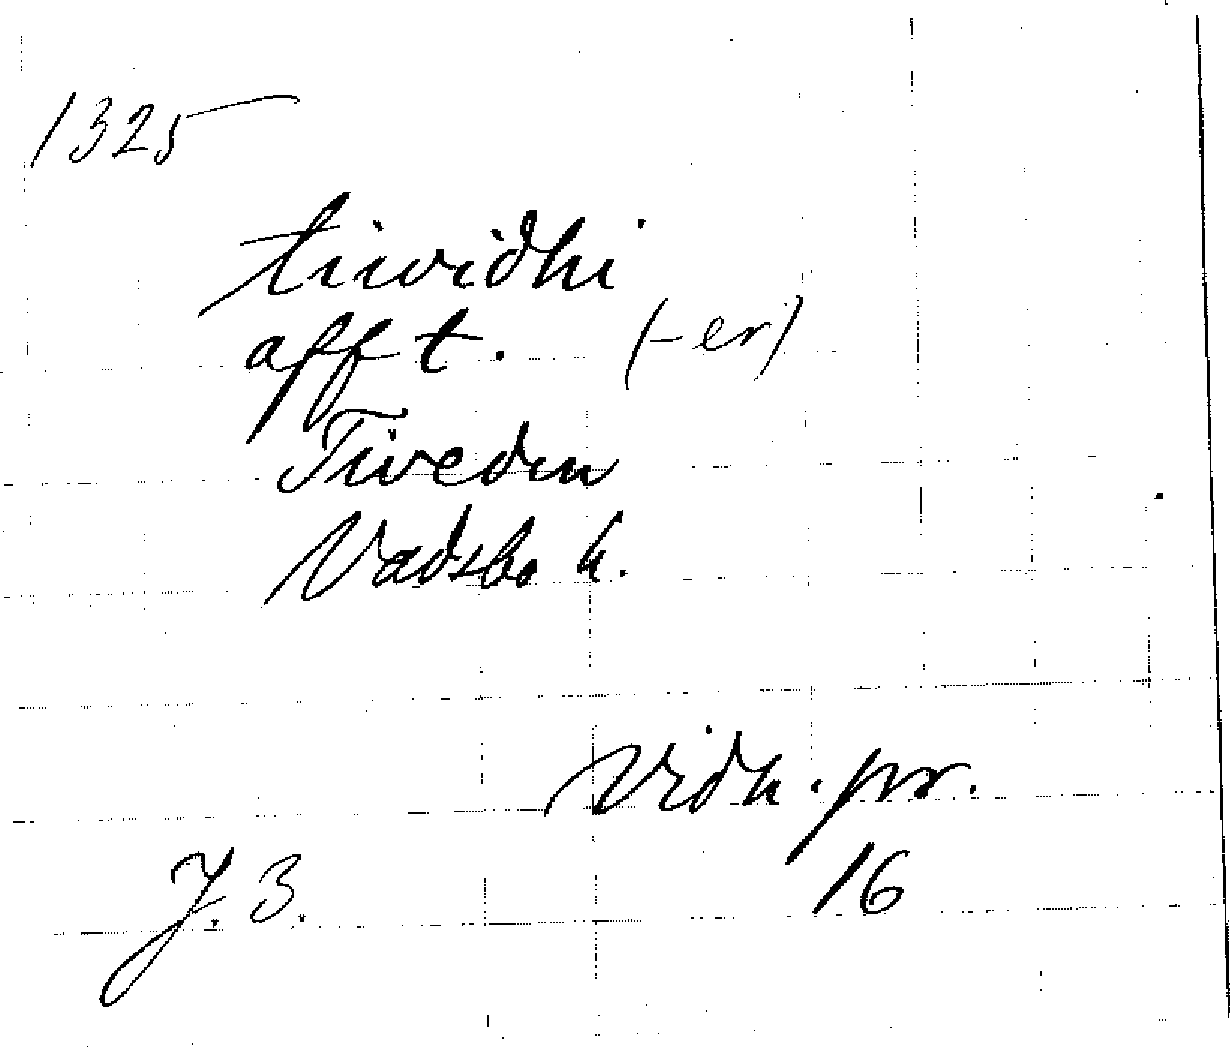 1325
tiwidhi
aff t. (-er)
Tiveden
Vadsbo h.
Vidh. pr.
16
J. 3.